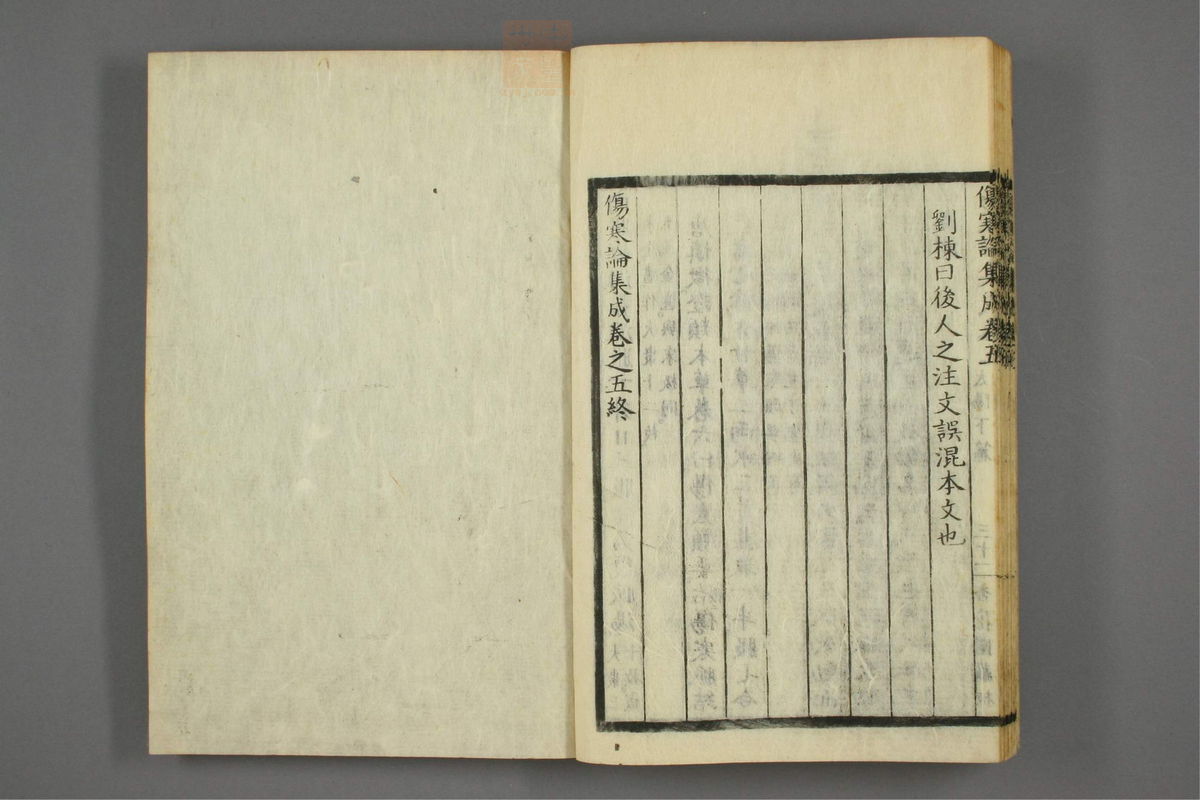 傷寒論集成卷五
劉棟曰後人之注文誤混本文也
傷寒論集成卷之五終